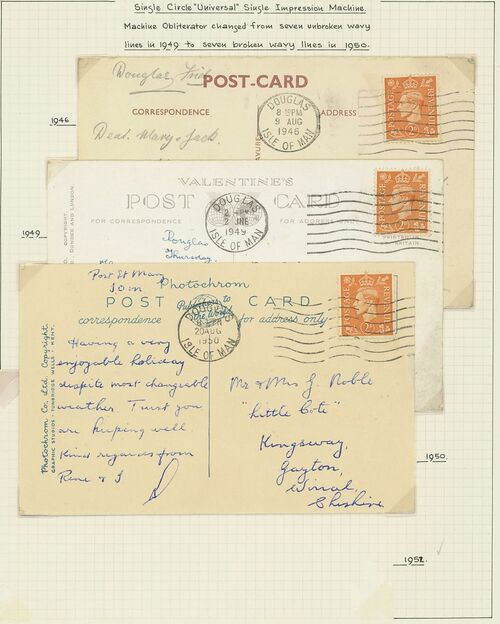 Single Circle "Universal" Single Impression Machine.
Machine Obliterator changed from seven unbroken wavy
lines in 1949 to seven broken wavy lines in 1950.
1946
Douglas,
POST-CARD
CORRESPONDENCE
ADDRESS
Dear Mary & Jack.
DOUGLAS
8 PM
9 AUG
1946
ISLE OF MAN
POSTAGE
REVENUE
1949
VALENTINE'S
POST CARD
FOR CORRESPONDENCE
COPYRIGHT.
DUNDEE AND LONDON
Douglas
Thursday
DOUGLAS
2 JNE
1949
ISLE OF MAN
POSTAGE
REVENUE
PRINTED IN
BRITAIN
Port St Mary
I.O.M
Photochrom
POST CARD
Publishers to
the World
correspondence
for address only
Photochrom Co., Ltd. Copyright.
GRAPHIC STUDIOS - TUNBRIDGE WELLS, KENT.
DOUGLAS
20 AUG
1950
ISLE OF MAN
POSTAGE
REVENUE
Having a very
enjoyable holiday
despite most changeable
weather. Trust you
are keeping well.
Kind regards from
Rene & J
Mr & Mrs J. Noble
"Little Cote"
Kingsway,
Gayton,
Wirral,
Cheshire
1950.
1952.